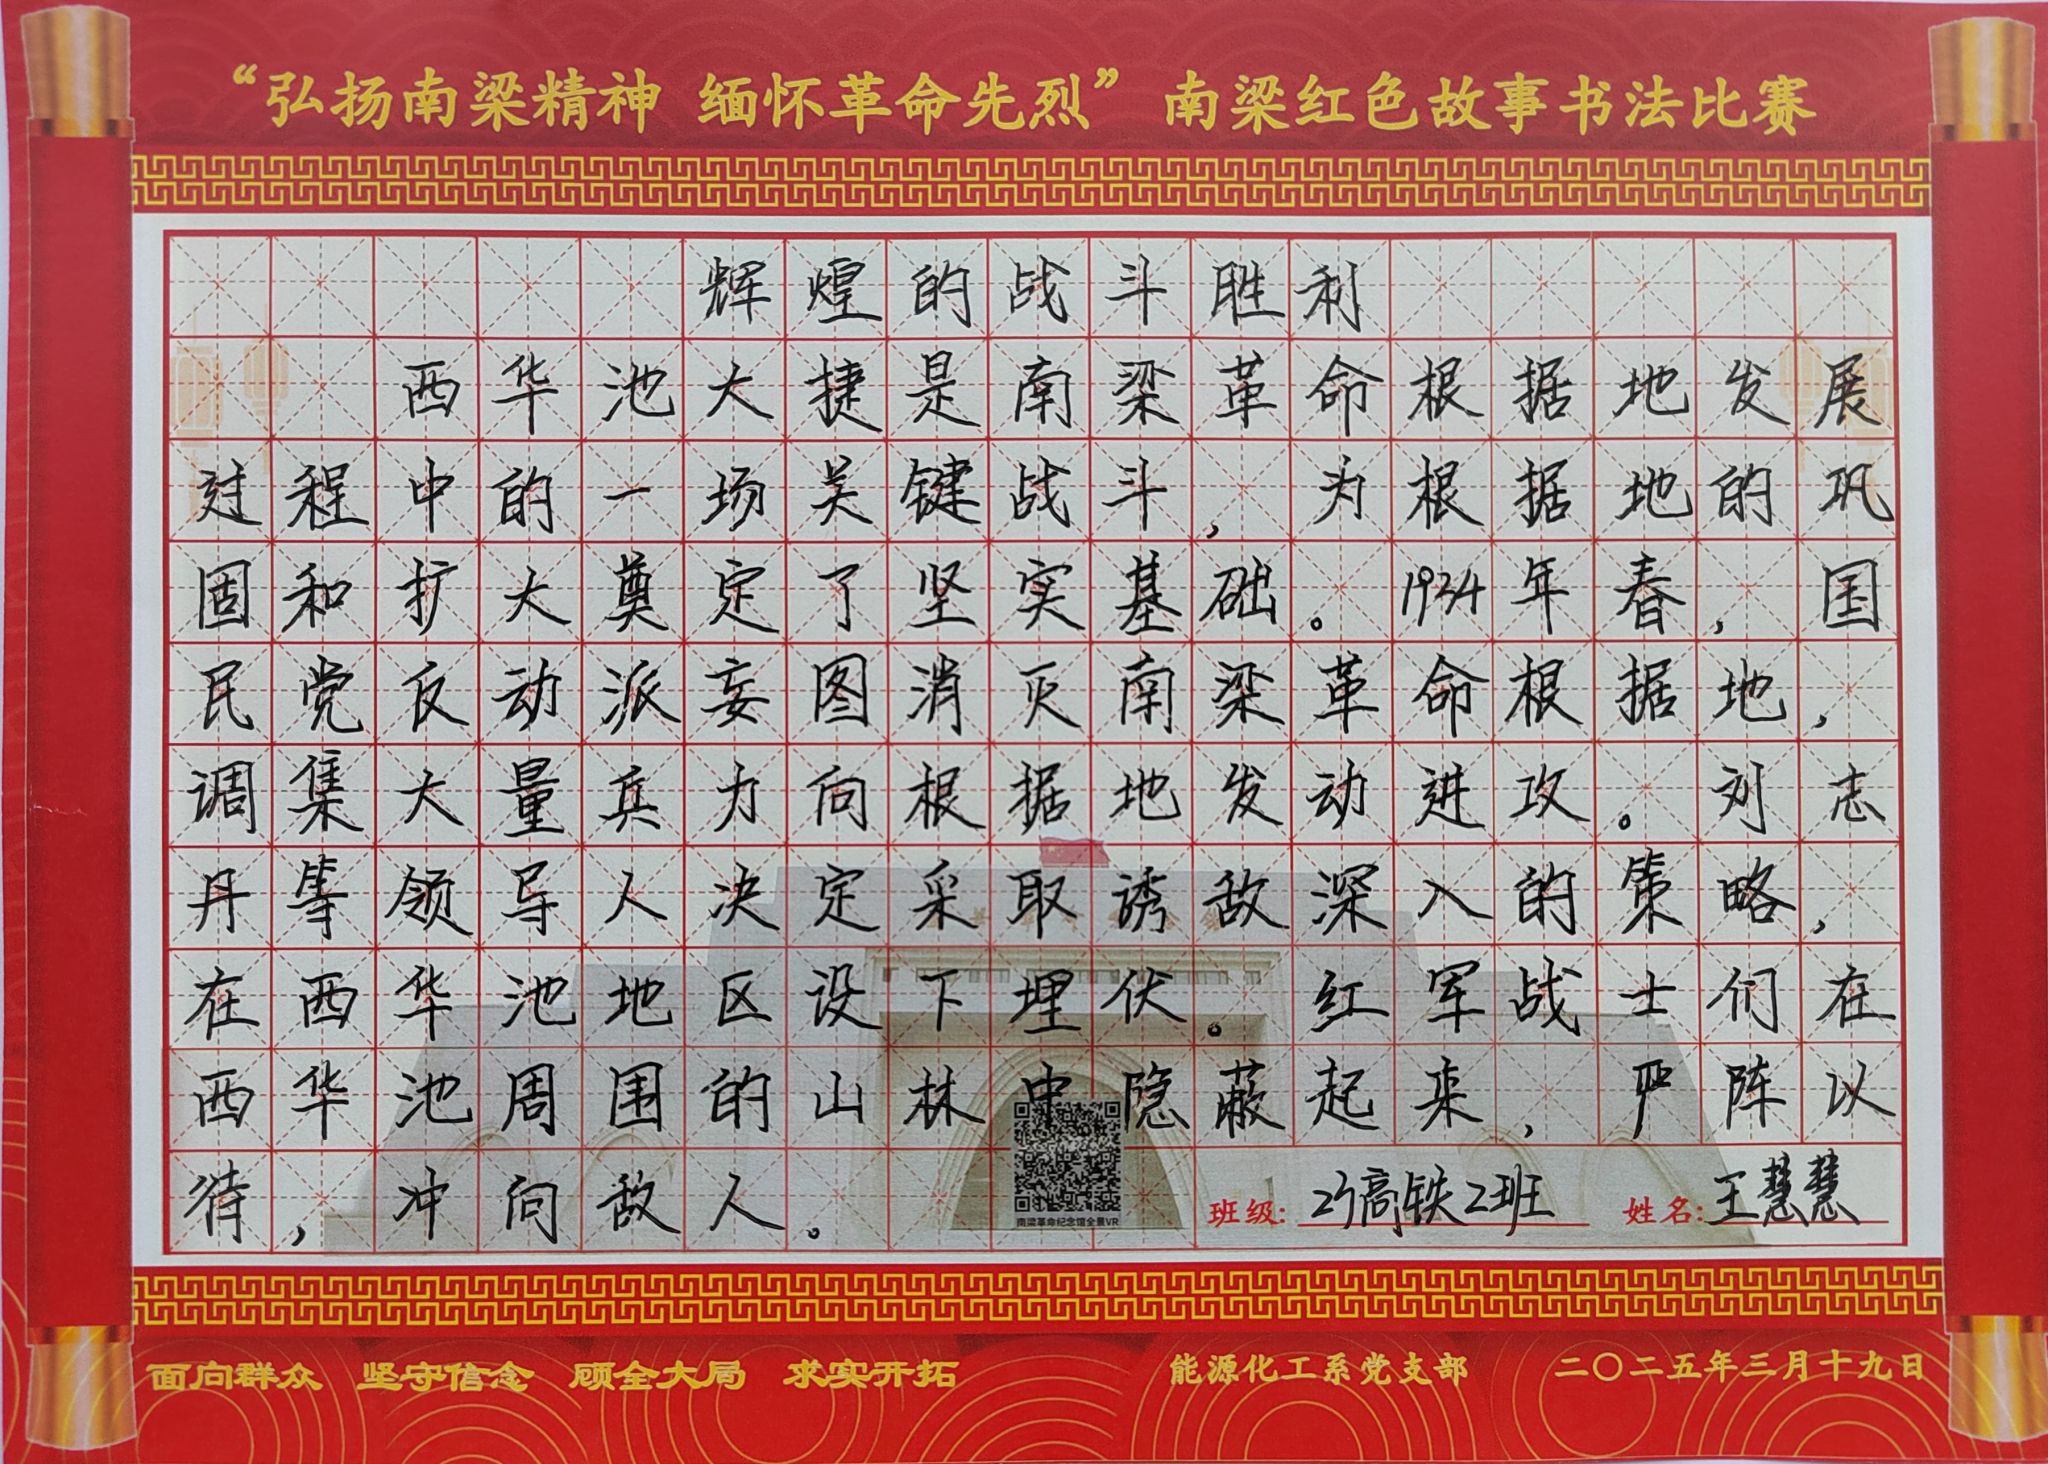 “弘扬南梁精神 缅怀革命先烈” 南梁红色故事书法比赛
辉煌的战斗胜利
西华池大捷是南梁革命根据地发展
过程中的一场关键战斗，为根据地的巩
固和扩大奠定了坚实基础。1934年春，国
民党反动派妄图消灭南梁革命根据地，
调集大量兵力向根据地发动进攻。刘志
丹等领导人决定采取诱敌深入的策略，
在西华池地区设下埋伏。红军战士们在
西华池周围的山林中隐蔽起来，严阵以
待，冲向敌人。
南梁革命纪念馆全景VR
班级: 高铁2班 姓名: 王慧慧
面向群众 坚守信念 顾全大局 求实开拓 能源化工系党支部 二〇二五年三月十九日